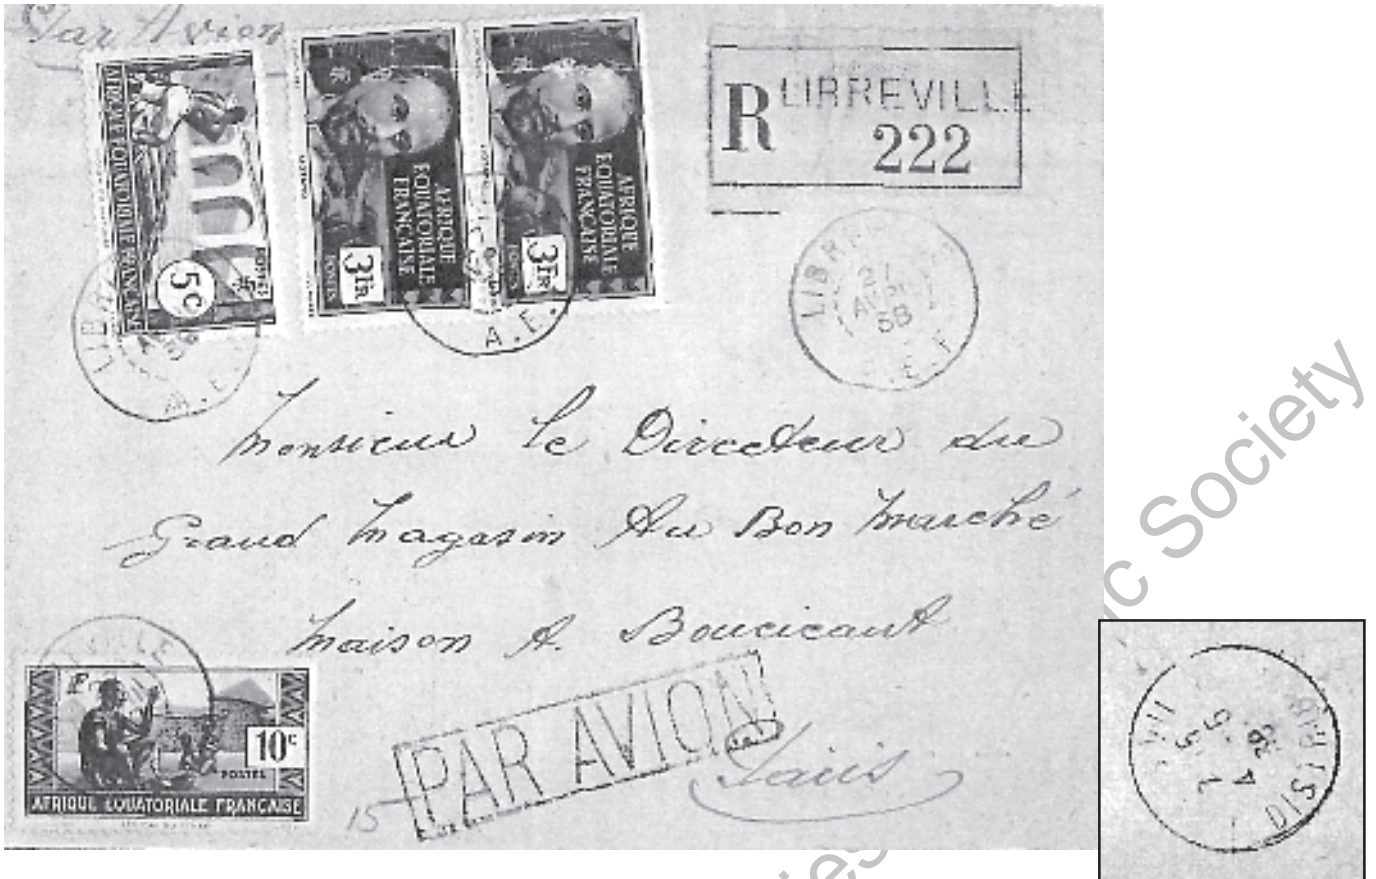 Par Avion
AFRIQUE EQUATORIALE FRANÇAISE
POSTES
5c
AFRIQUE
EQUATORIALE
FRANÇAISE
3FR
POSTES
AFRIQUE
EQUATORIALE
FRANÇAISE
3FR
POSTES
R LIBREVILLE
222
LIBR
A.E.
A.E.
LIBR
21
58
E.F
Monsieur le Directeur du
Grand Magasin Au Bon Marché
Maison A. Boucicaut
Paris
PAR AVION
15
VILLE
10c
POSTES
AFRIQUE EQUATORIALE FRANÇAISE
DISTRIB
c Society
ies